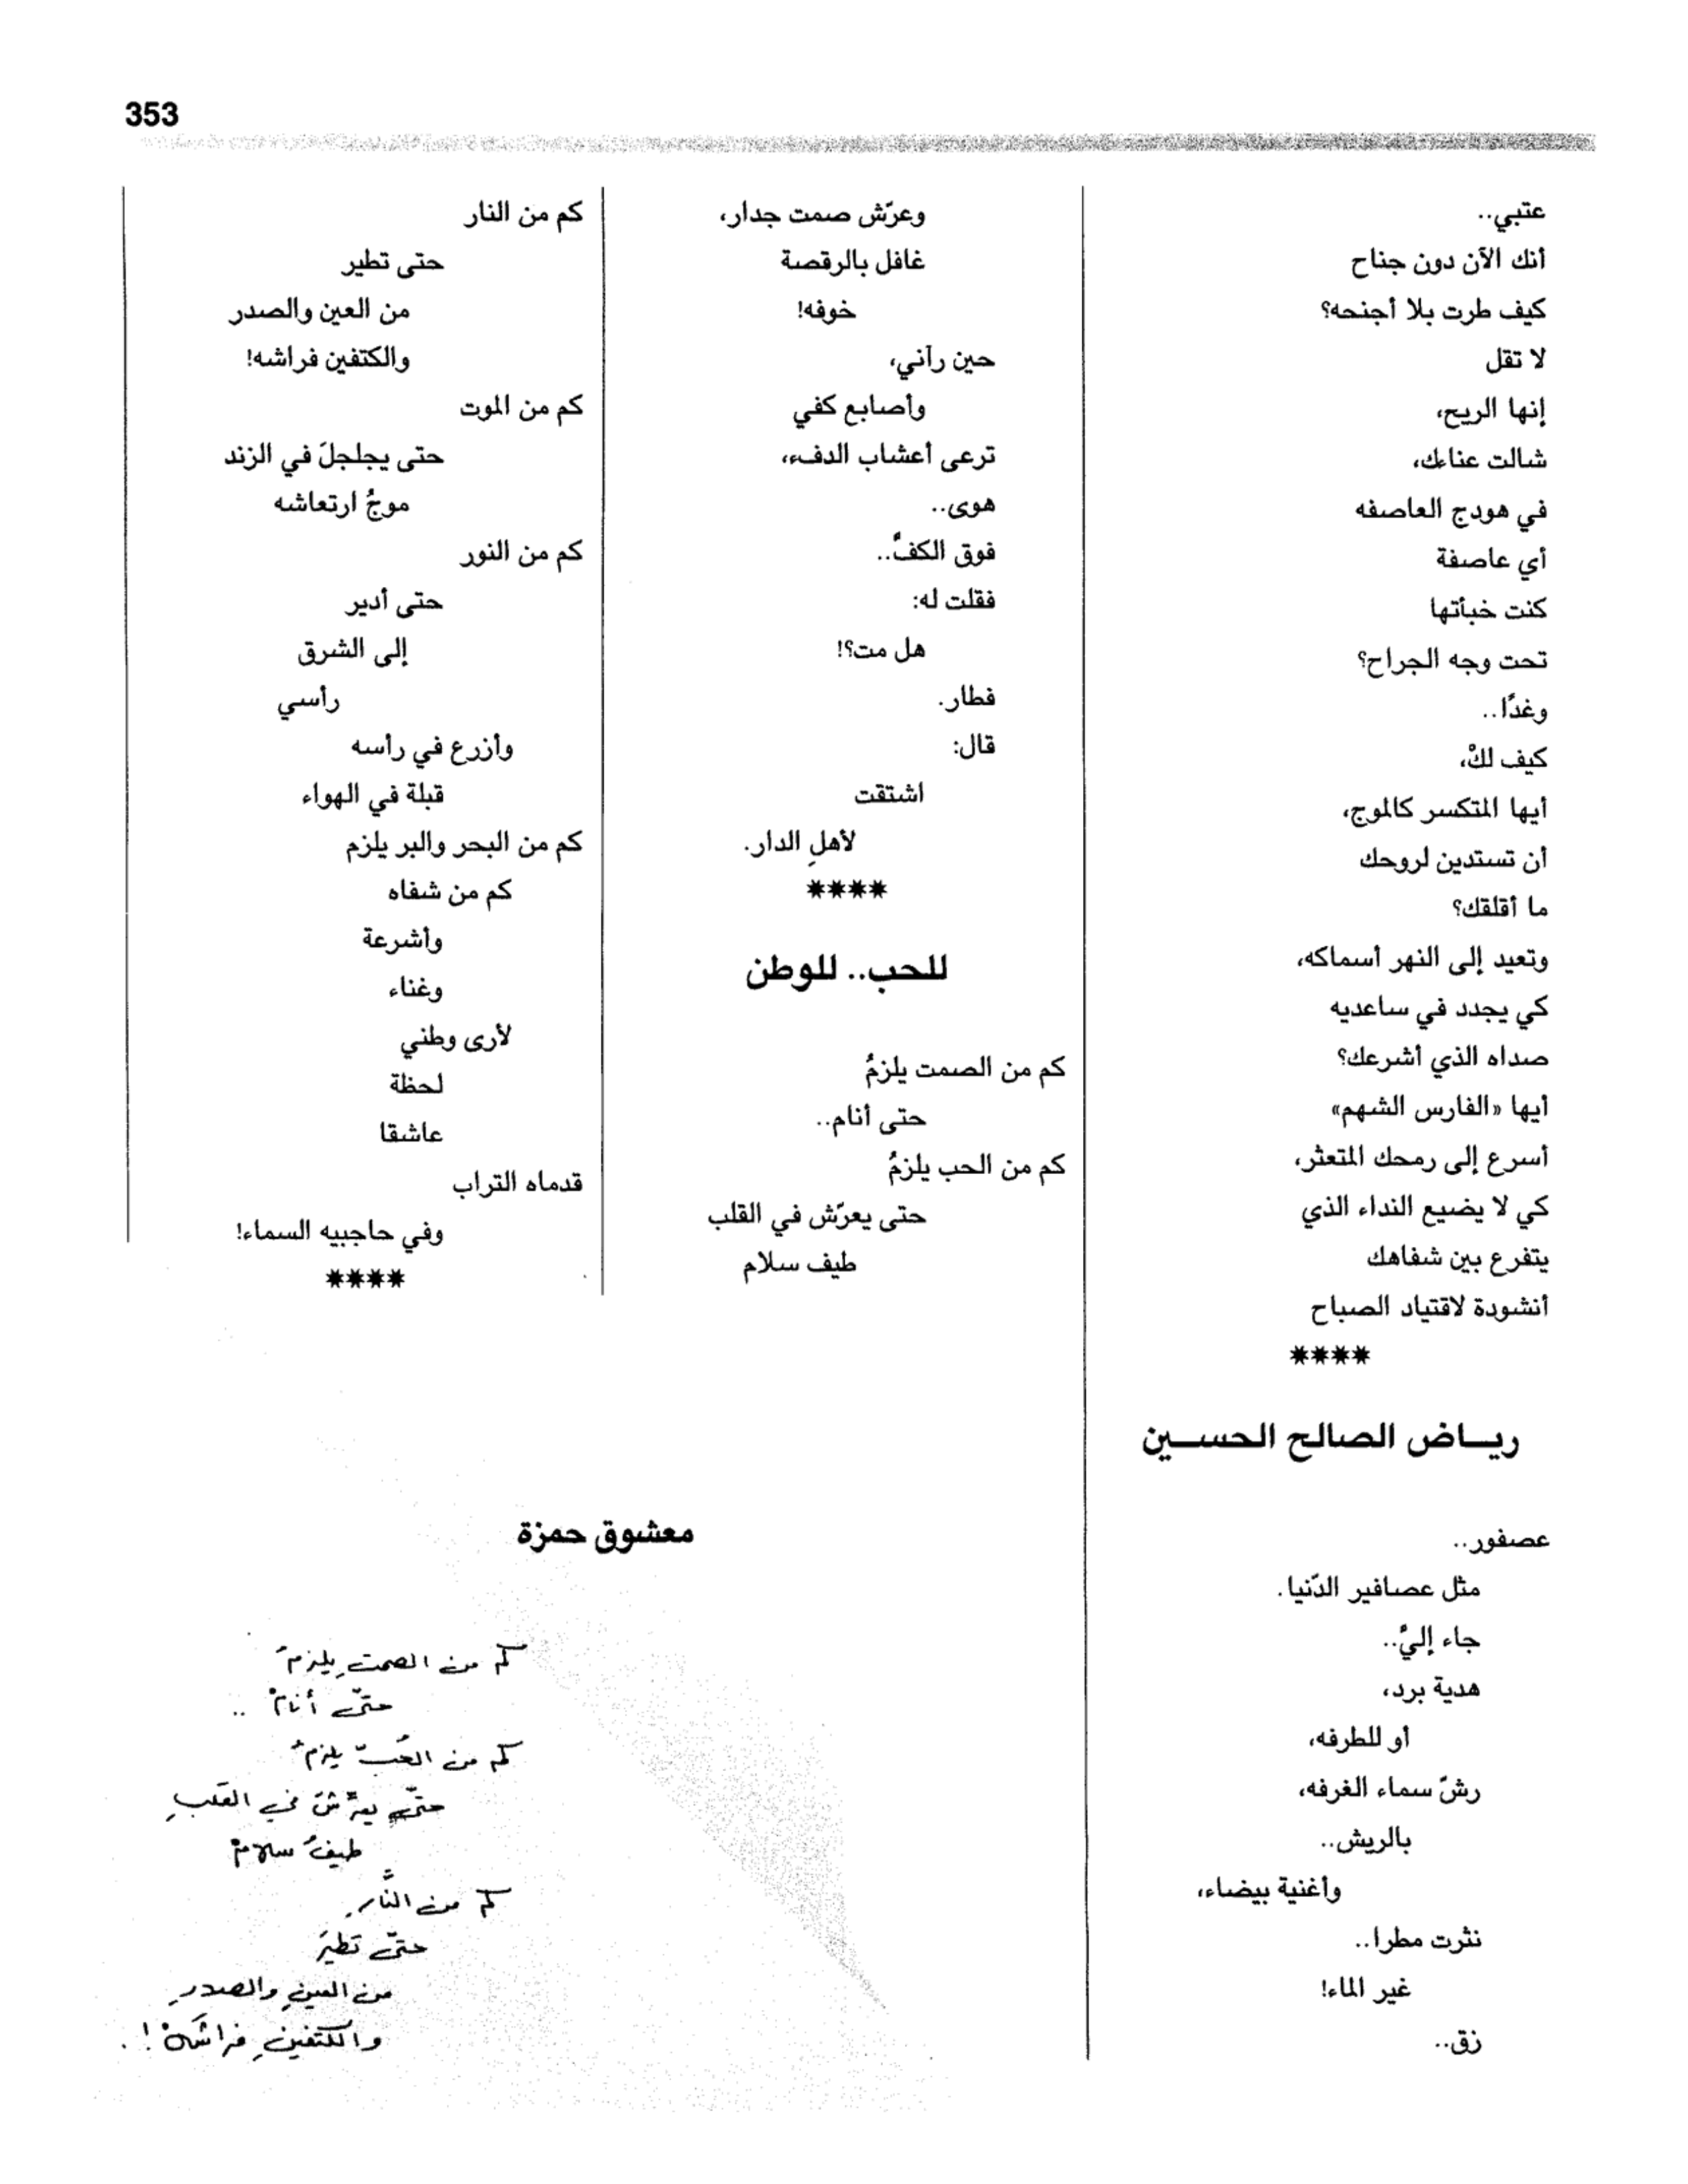 353
عتبي..
أنك الآن دون جناح
كيف طرت بلا أجنحه؟
لا تقل
إنها الريح،
شالت عناءك،
في هودج العاصفه
أي عاصفة
كنت خبأتها
تحت وجه الجراح؟
وغدًا..
كيف لكْ،
أيها المتكسر كالموج،
أن تستدين لروحك
ما أقلقك؟
وتعيد إلى النهر أسماكه،
كي يجدد في ساعديه
صداه الذي أشرعك؟
أيها «الفارس الشهم»
أسرع إلى رمحك المتعثر،
كي لا يضيع النداء الذي
يتفرع بين شفاهك
أنشودة لاقتياد الصباح
****
ريـاض الصالح الحسـين
عصفور..
مثل عصافير الدّنيا.
جاء إليَّ..
هدية برد،
أو للطرفه،
رشّ سماء الغرفه،
بالريش..
وأغنية بيضاء،
نثرت مطرا..
غير الماء!
زق..
وعرّش صمت جدار،
غافل بالرقصة
خوفه!
حين رآني،
وأصابع كفي
ترعى أعشاب الدفء،
هوى..
فوق الكفِّ..
فقلت له:
هل مت؟!
فطار.
قال:
اشتقت
لأهلِ الدار.
****
للحب.. للوطن
كم من الصمت يلزمُ
حتى أنام..
كم من الحب يلزمُ
حتى يعرّش في القلب
طيف سلام
كم من النار
حتى تطير
من العين والصدر
والكتفين فراشه!
كم من الموت
حتى يجلجلَ في الزند
موجُ ارتعاشه
كم من النور
حتى أدير
إلى الشرق
رأسي
وأزرع في رأسه
قبلة في الهواء
كم من البحر والبر يلزم
كم من شفاه
وأشرعة
وغناء
لأرى وطني
لحظة
عاشقا
قدماه التراب
وفي حاجبيه السماء!
****
معشوق حمزة
كم من الصمتِ يلزمُ
حتّى أنامْ ..
كم من الحُبّ يلزمُ
حتّى يعرّشَ في القلبِ
طيفُ سلامْ
كم من النَّارِ
حتّى تطيرَ
من العينِ والصدرِ
والكتفينِ فراشَهْ!.